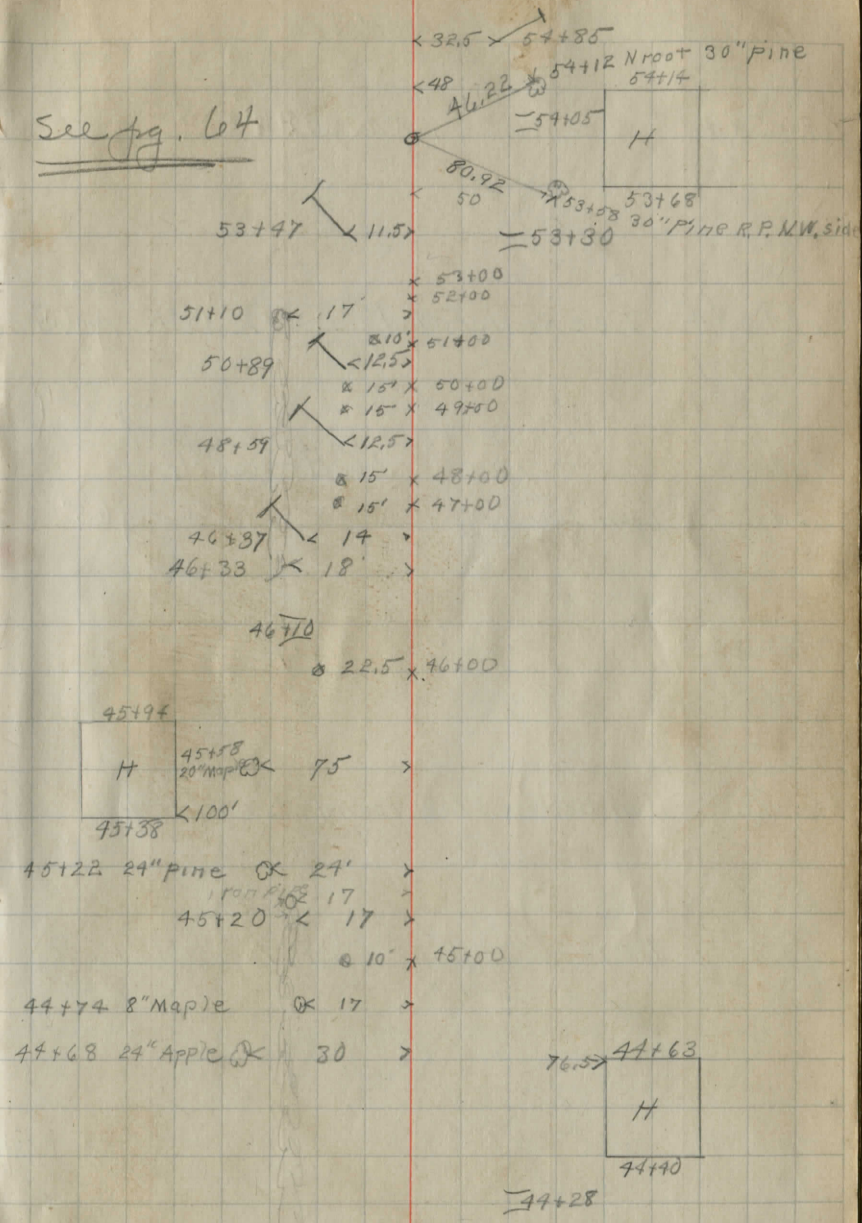 32.5 54+85
54+12 N root 30" pine
48 46.22 54+14
54+05
See pg. 64
H
80.92
50 53+58 53+68
30" Pine R.P. N.W. side
53+47 11.5 53+30
53+00
52+00
51+10 17'
10' 51+00
50+89 12.5
15' 50+00
15' 49+00
48+59 12.5
15' 48+00
15' 47+00
46+37 14
46+33 18'
46+10
22.5 46+00
45+94
H 45+58
20" Maple 75
100'
45+38
45+22 24" Pine 24'
Iron pipe 17
45+20 17
10' 45+00
44+74 8" Maple 17
44+68 24" Apple 30
76.5 44+63
H
44+40
44+28